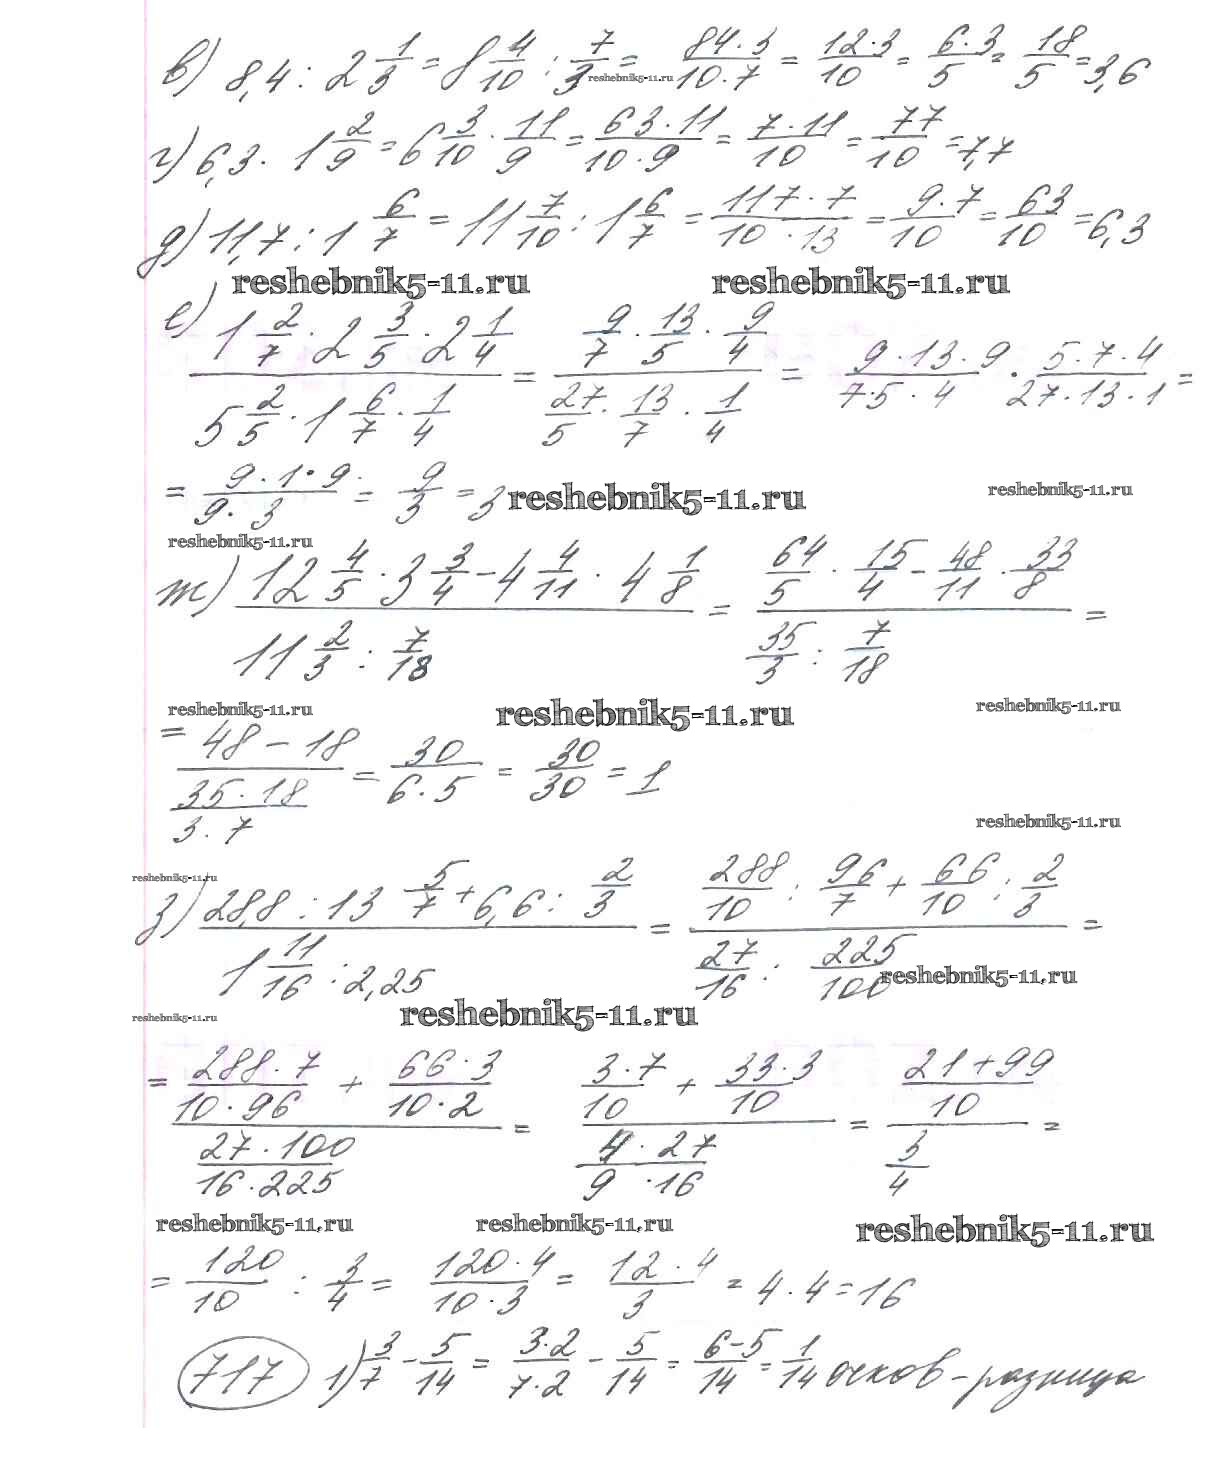 в) 8,4 : 2 1/3 = 8 4/10 : 7/3 = 84·3/10·7 = 12·3/10 = 6·3/5 = 18/5 = 3,6
reshebnik5-11.ru
г) 6,3 · 1 2/9 = 6 3/10 · 11/9 = 63·11/10·9 = 7·11/10 = 77/10 = 7,7
д) 11,7 : 1 6/7 = 11 7/10 : 1 6/7 = 117·7/10·13 = 9·7/10 = 63/10 = 6,3
reshebnik5-11.ru reshebnik5-11.ru
е) (1 2/7 · 2 3/5 · 2 1/4)/(5 2/5 · 1 6/7 · 1/4) = (9/7 · 13/5 · 9/4)/(27/5 · 13/7 · 1/4) = 9·13·9/7·5·4 · 5·7·4/27·13·1 =
= 9·1·9/9·3 = 9/3 = 3 reshebnik5-11.ru reshebnik5-11.ru
reshebnik5-11.ru
ж) (12 4/5 · 3 3/4 - 4 4/11 · 4 1/8)/(11 2/3 : 7/18) = (64/5 · 15/4 - 48/11 · 33/8)/(35/3 : 7/18) =
reshebnik5-11.ru reshebnik5-11.ru reshebnik5-11.ru
= (48 - 18)/(35·18/3·7) = 30/6·5 = 30/30 = 1
reshebnik5-11.ru
reshebnik5-11.ru
з) (28,8 : 13 5/7 + 6,6 : 2/3)/(1 11/16 : 2,25) = (288/10 : 96/7 + 66/10 : 2/3)/(27/16 : 225/100) =
reshebnik5-11.ru
reshebnik5-11.ru reshebnik5-11.ru
= (288·7/10·96 + 66·3/10·2)/(27·100/16·225) = (3·7/10 + 33·3/10)/(4·27/9·16) = (21+99/10)/(3/4) =
reshebnik5-11.ru reshebnik5-11.ru reshebnik5-11.ru
= 120/10 : 3/4 = 120·4/10·3 = 12·4/3 = 4·4 = 16
717 1) 3/7 - 5/14 = 3·2/7·2 - 5/14 = 6-5/14 = 1/14 очков - разница